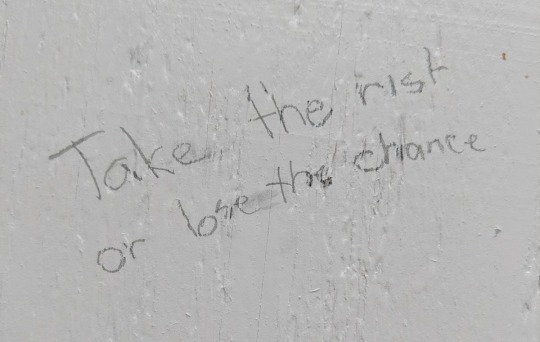 Take the risk
or lose the chance